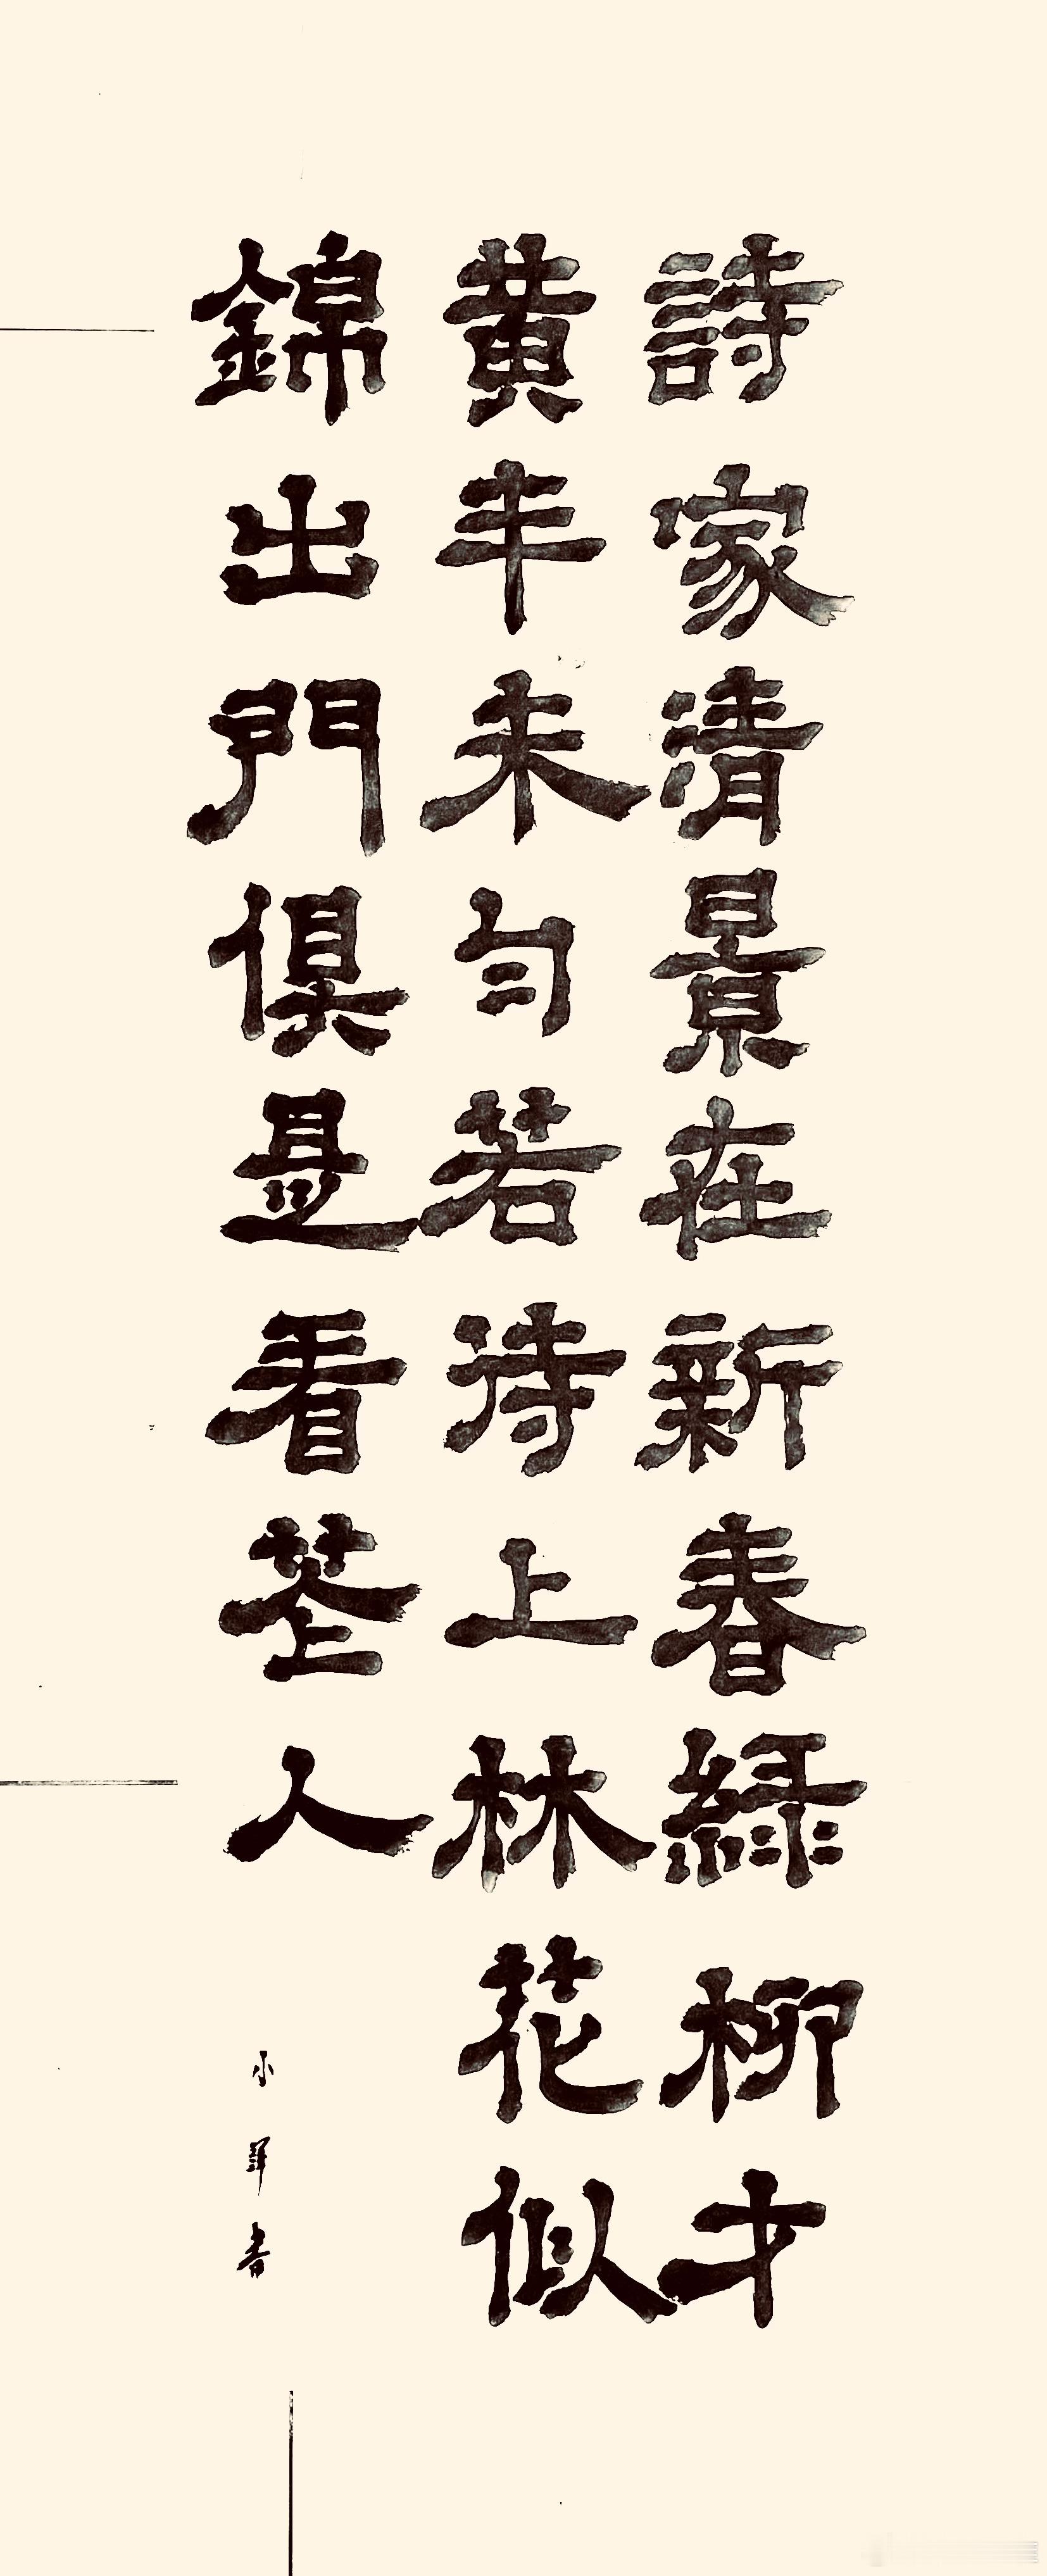 詩家清景在新春綠柳才
黄半未勻若待上林花似
錦出門俱是看花人
小輝書